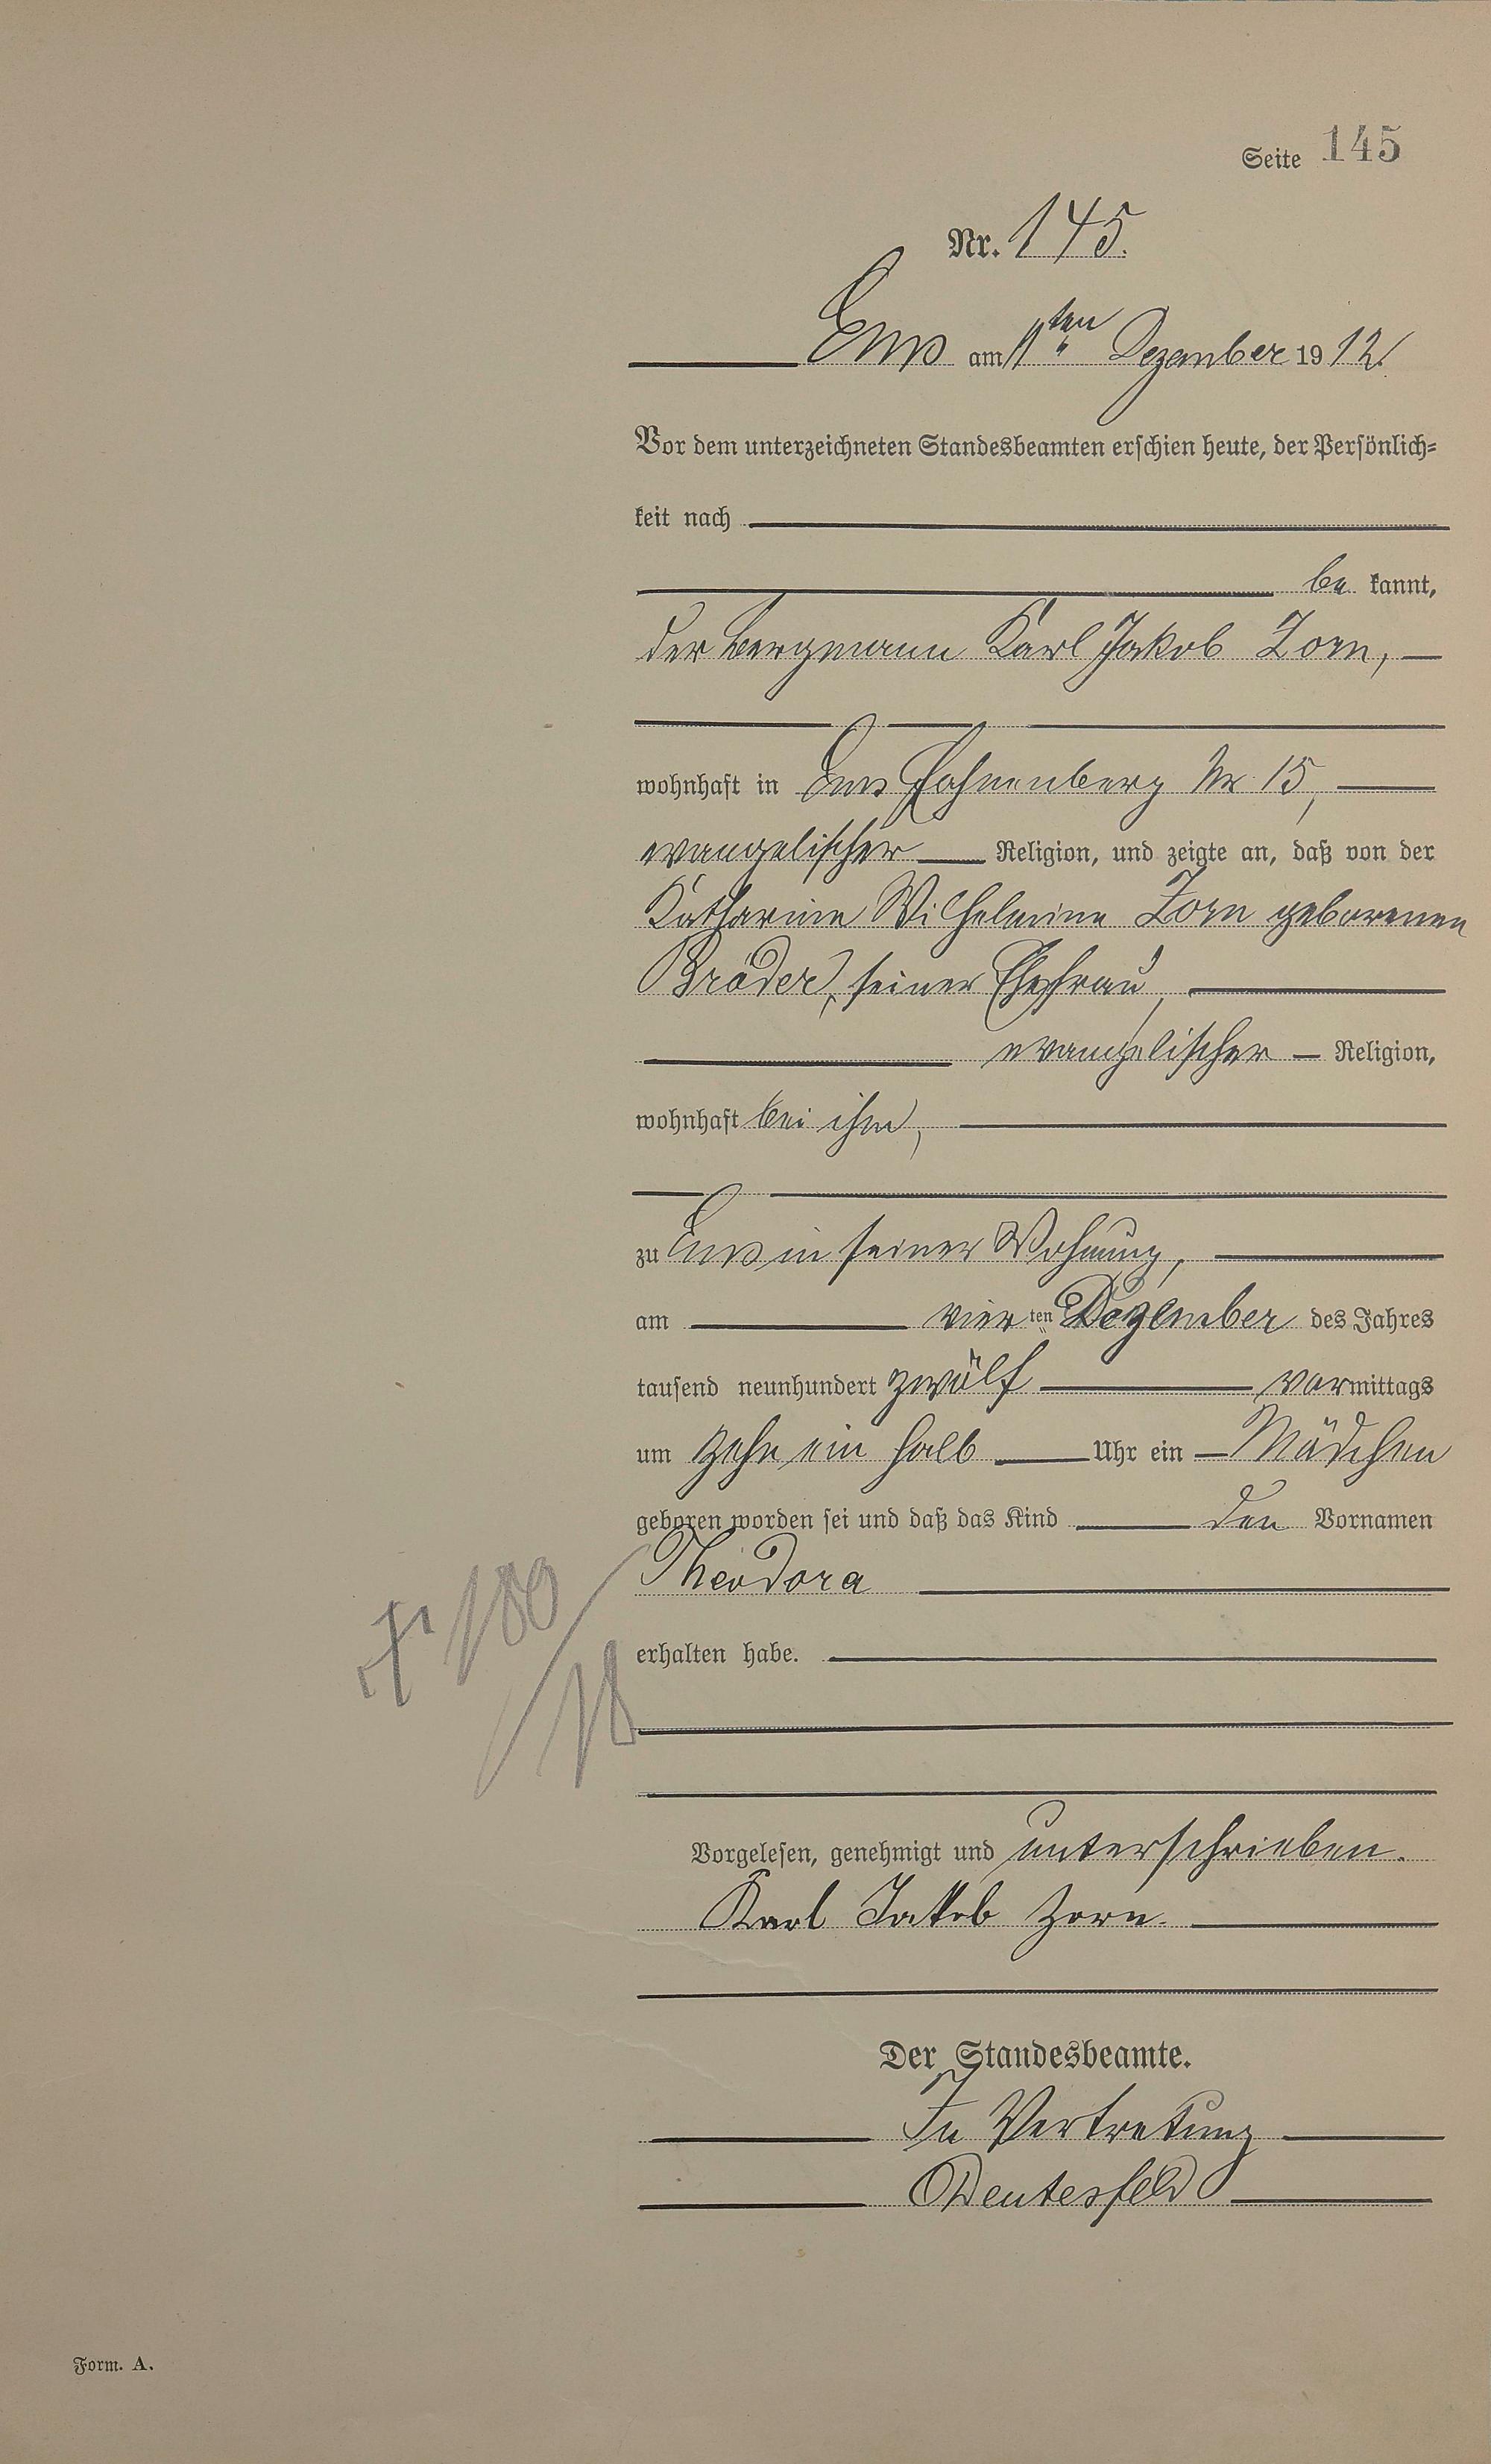 Seite 145
Nr. 145.
Ems am 11ten Dezember 1912.
Vor dem unterzeichneten Standesbeamten erschien heute, der Persönlich=
keit nach
be kannt,
der Bergmann Karl Jakob Zorn,
wohnhaft in Ems Hohenberg Nr 15,
evangelischer Religion, und zeigte an, daß von der
Katharine Wilhelmine Zorn geborenen
Bröder, seiner Ehefrau,
evangelischer Religion,
wohnhaft bei ihm,
zu Ems in seiner Wohnung,
am vier ten Dezember des Jahres
tausend neunhundert zwölf vormittags
um zehn ein halb Uhr ein Mädchen
geboren worden sei und daß das Kind den Vornamen
Theodora
erhalten habe.
† 100/18
Vorgelesen, genehmigt und unterschrieben.
Karl Jakob Zorn.
Der Standesbeamte.
In Vertretung
Form. A.